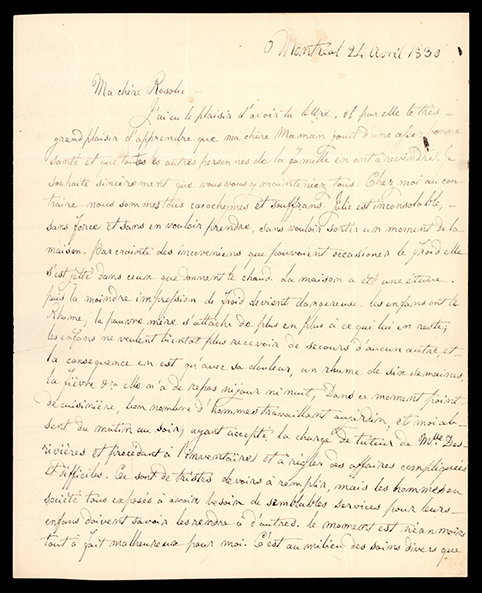 Montreal 24 Avril 1830
Ma chère Rosalie -
J'ai eu le plaisir d'avoir ta lettre, et par elle le très-
grand plaisir d'apprendre que ma chère Maman jouit d'une assez bonne
santé et que toutes les autres personnes de la famille en ont à revendre. Je
souhaite sincèrement que vous vous y mainteniez tous. Chez moi au con-
traire nous sommes tous cacochymes et souffrans. Julie est inconsolable, -
sans force et sans en vouloir prendre, sans vouloir sortir un moment de la
maison. Par crainte des inconveniens que pouvaient occasioner le froid elle
s'est jetté dans ceux que donnent le chaud. La maison a été une étuve.
puis la moindre impression de froid devient dangereuse. les enfans ont le
Rhume, la pauvre mère s'attache de plus en plus à ce qui lui en reste,
les enfans ne veulent bientot plus recevoir de secours d'aucun autre et -
la consequence en est qu'avec sa douleur, un rhume de six semaines,
la fièvre &a elle n'a de repos ni jour ni nuit, Dans ce moment point
de cuisinière, bon nombre d'hommes travaillant au jardin, et moi ab-
sent du matin au soir, ayant accepté la charge de tuteur de Mlle Des-
rivières et procédant à l'inventaire et à régler des affaires compliquées
et difficiles. Ce sont de tristes devoirs à remplir, mais les hommes en
société tous exposés à avoir besoin de semblables services pour leurs -
enfans doivent savoir les rendre à d'autres. le moment est néanmoins
tout à fait malheureux pour moi. C'est au milieu des soins divers que